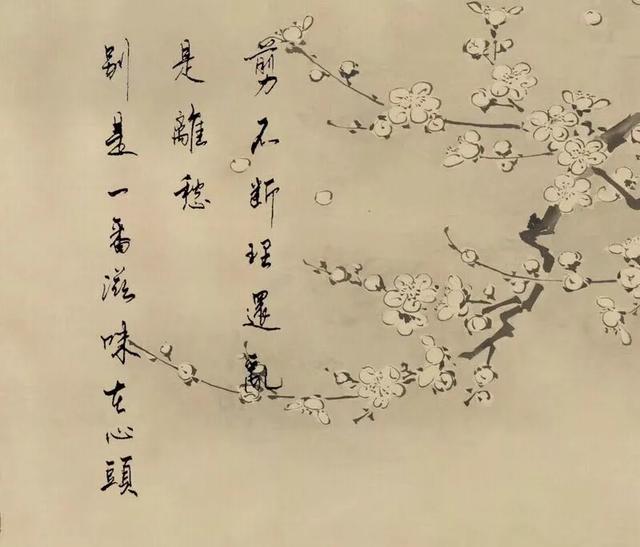 剪不断理還亂
是離愁
別是一番滋味在心頭